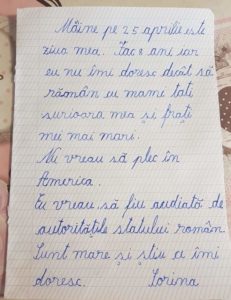 Mâine pe 25 aprilie este
ziua mea. Fac 8 ani iar
eu nu îmi doresc decât să
rămân cu mami tati
surioara mea și frați
mei mai mari.
Nu vreau să plec în
America.
Eu vreau să fiu audiată de
autoritățile statului român.
Sunt mare și știu ce îmi
doresc. Sorina